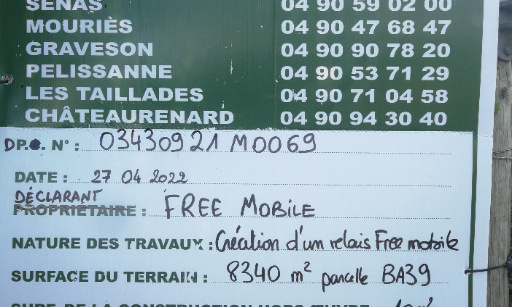 SÉNAS 04 90 59 02 00
MOURIÈS 04 90 47 68 47
GRAVESON 04 90 90 78 20
PELISSANNE 04 90 53 71 29
LES TAILLADES 04 90 71 04 58
CHÂTEAURENARD 04 90 94 30 40
DP N° : 03430921M0069
DATE : 27 04 2022
DÉCLARANT
PROPRIÉTAIRE : FREE MOBILE
NATURE DES TRAVAUX : Création d'un relais Free mobile
SURFACE DU TERRAIN : 8340 m² parcelle BA39
SURF. DE LA CONSTRUCTION HORS ŒUVRE